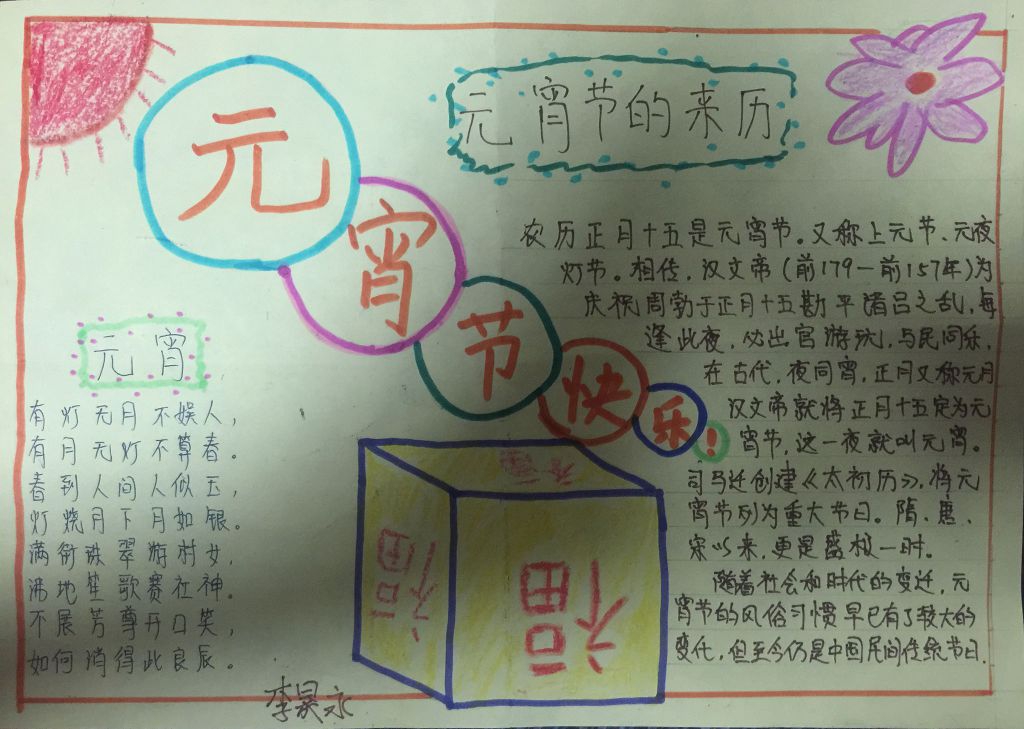 元宵节快乐!
元宵节的来历
农历正月十五是元宵节。又称上元节、元夜
灯节。相传,汉文帝(前179一前157年)为
庆祝周勃于正月十五勘平诸吕之乱,每
逢此夜,必出宫游玩,与民同乐,
在古代,夜同宵,正月又称元月
汉文帝就将正月十五定为元
宵节,这一夜就叫元宵。
司马迁创建《太初历》,将元
宵节列为重大节日。隋、唐、
宋以来,更是盛极一时。
随着社会和时代的变迁,元
宵节的风俗习惯早已有了较大的
变化,但至今仍是中国民间传统节日.
元宵
有灯无月不娱人,
有月无灯不算春。
春到人间人似玉,
灯烧月下月如银。
满街珠翠游村女,
沸地笙歌赛社神。
不展芳尊开口笑,
如何消得此良辰。
福
福
福
李昊永